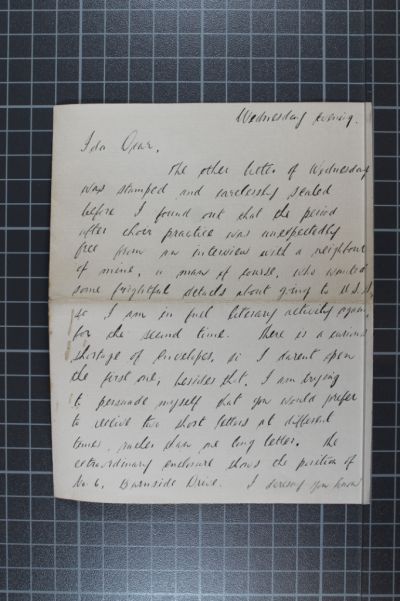 Wednesday evening.
Ida Dear,
The other letter of Wednesday
was stamped and carelessly sealed
before I found out that the period
after choir practice was unexpectedly
free from an interview with a neighbour
of mine, a man of course, who wanted
some frightful details about going to U.S.A,
so I am in full literary activity again,
for the second time. There is a curious
shortage of envelopes, so I darent open
the first one, besides that, I am trying
to persuade myself that you would prefer
to receive two short letters at different
times, rather than one long letter. The
extraordinary enclosure shows the position of
No 6, Burnside Drive. I you know